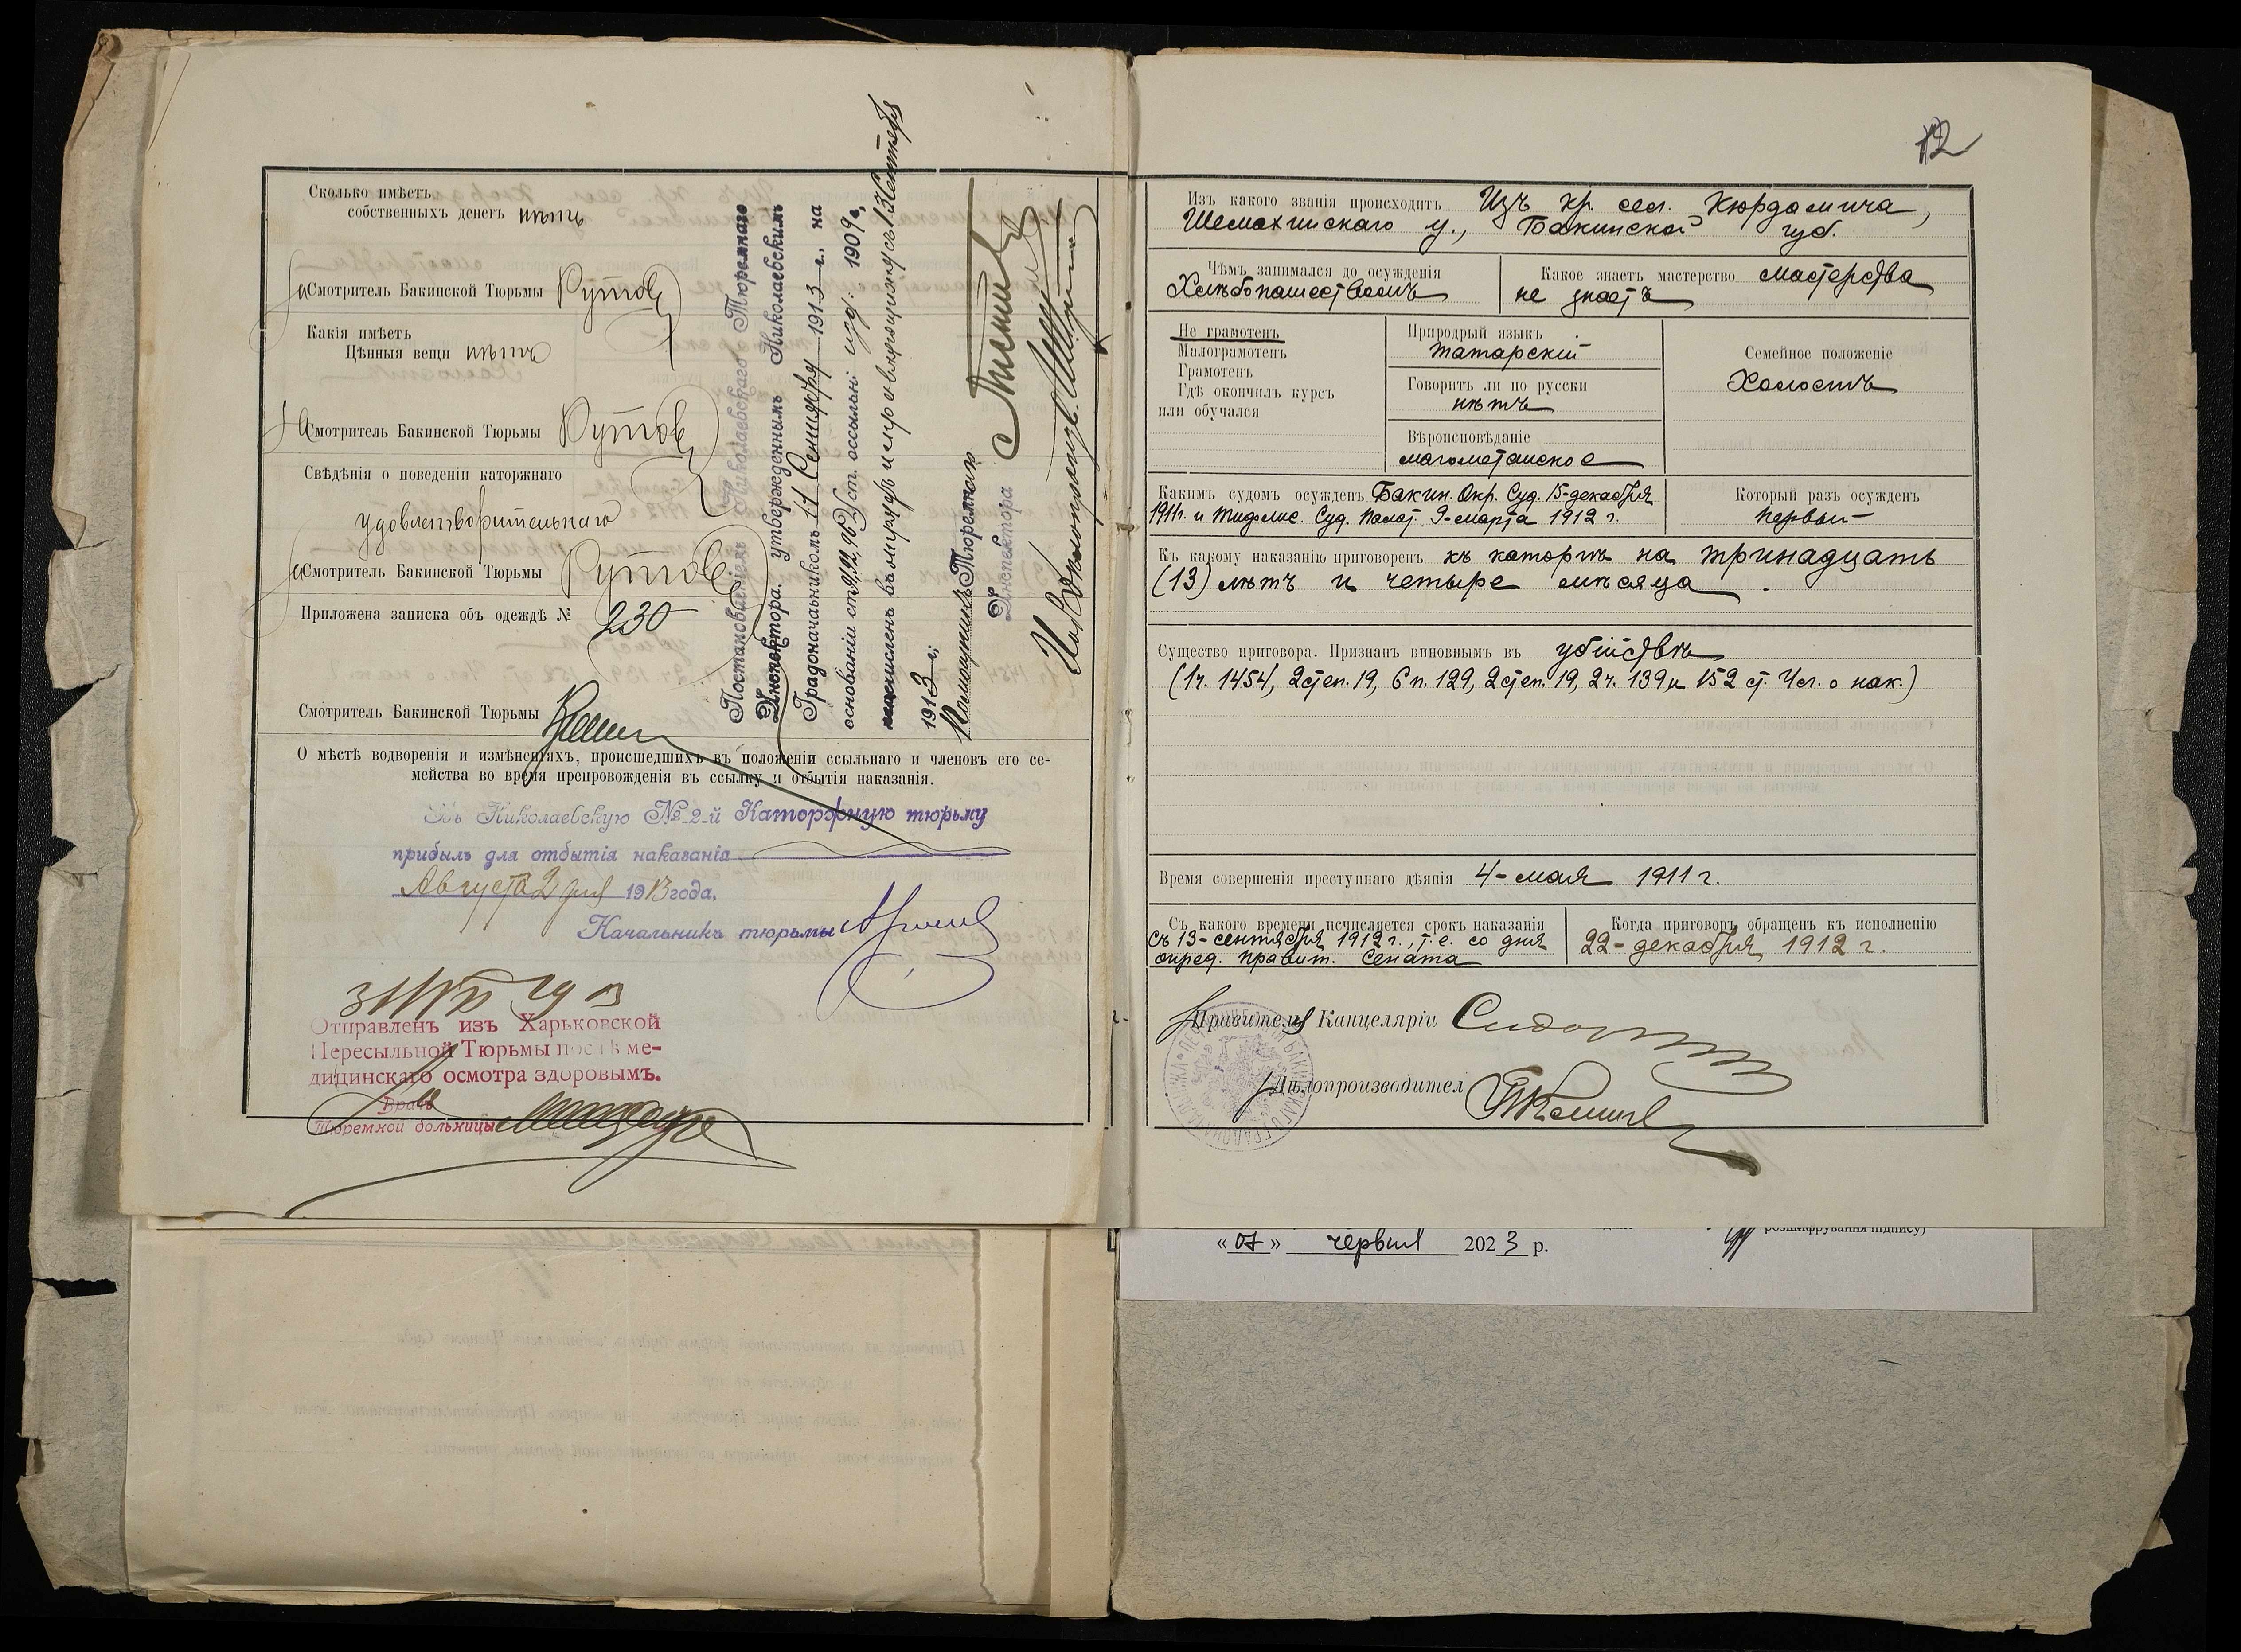 Сколько имѣетъ
собственныхъ денегъ нѣтъ
Смотритель Бакинской Тюрьмы
Какія имѣетъ
Цѣнныя вещи нѣтъ
Смотритель Бакинской Тюрьмы
Свѣдѣнія о поведеніи каторжнаго
удовлетворительнаго
Смотритель Бакинской Тюрьмы
Приложена записка объ одеждѣ № 230
Смотритель Бакинской Тюрьмы
О мѣстѣ водворенія и измѣненіяхъ, происшедшихъ въ положеніи ссыльнаго и членовъ его се-
мейства во время препровожденія въ ссылку и отбытія наказанія.
Въ Николаевскую № 2-й Каторжную тюрьму
прибылъ для отбытія наказанія
Августа 2 дня 1913 года.
Начальникъ тюрьмы
Отправленъ изъ Харьковской
Пересыльной Тюрьмы послѣ ме-
дицинскаго осмотра здоровымъ.
Врачъ
Тюремной больницы
Постановленіемъ Николаевскаго Тюремнаго
Инспектора, утвержденнымъ Николаевскимъ
Градоначальникомъ 11 Сентября 1913 г., на
основаніи ст. Уст. о ссыльн. изд. 1909 г.,
1913 г.
Помощникъ Тюремнаго
Инспектора
12
Изъ какого званія происходитъ Изъ кр. сел. Кюрдамича,
Шемахинскаго у., Бакинской губ.
Чѣмъ занимался до осужденія
Хлѣбопашествомъ
Какое знаетъ мастерство мастерства
не знаетъ
Не грамотенъ
Малограмотенъ
Грамотенъ
Гдѣ окончилъ курсъ
или обучался
Природрый языкъ
татарскій
Говоритъ ли по русски
нѣтъ
Вѣроисповѣданіе
магометанское
Семейное положеніе
Холостъ
Какимъ судомъ осужденъ Бакин. Окр. Суд. 15-декабря
1911 г. и Тифлис. Суд. Палат. 9-марта 1912 г.
Который разъ осужденъ
первый
Къ какому наказанію приговоренъ къ каторгѣ на тринадцать
(13) лѣтъ и четыре мѣсяца.
Существо приговора. Признанъ виновнымъ въ убійствѣ
(1 ч. 1454, 2 степ. 19, 6 п. 129, 2 степ. 19, 2 ч. 139 и 152 ст. Ул. о нак.)
Время совершенія преступнаго дѣянія 4-мая 1911 г.
Съ какого времени исчисляется срокъ наказанія
Съ 13-сентября 1912 г., т. е. со дня
опред. Правит. Сената
Когда приговоръ обращенъ къ исполненію
22-декабря 1912 г.
Правитель Канцеляріи
Дѣлопроизводител
розшифрування підпису)
«07» червня 2023 р.